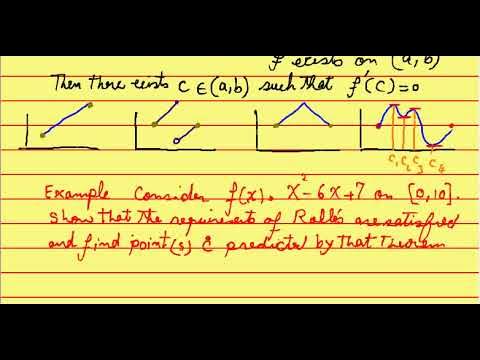 f' exists on (a,b)
Then there exists C ∈ (a,b) such that f'(C)=0
C₁ C₂ C₃ C₄
Example Consider f(x) = x²-6x+7 on [0,10].
Show that the requirements of Rolle's are satisfied
and find point(s) C predicted by that Theorem